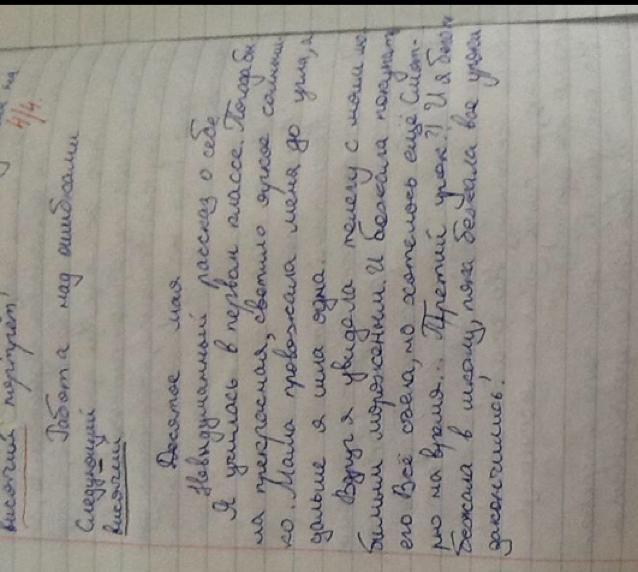 на
4/4.
висячий портрет!
Работа над ошибками
Следующий
висячий
Десятое мая
Невыдуманный рассказ о себе
Я училась в первом классе. Погода бы
ла прекрасная, светило яркое солныш
ко. Мама провожала меня до угла, а
дальше я шла одна.
Вдруг я увидела телегу с моим лю
бимым мороженым. И бежала покупать
его Всё съела, но хотелось ещё Смот-
рю на время... Третий урок?! И я
бежала в школу, пока бежала все уроки
закончились!